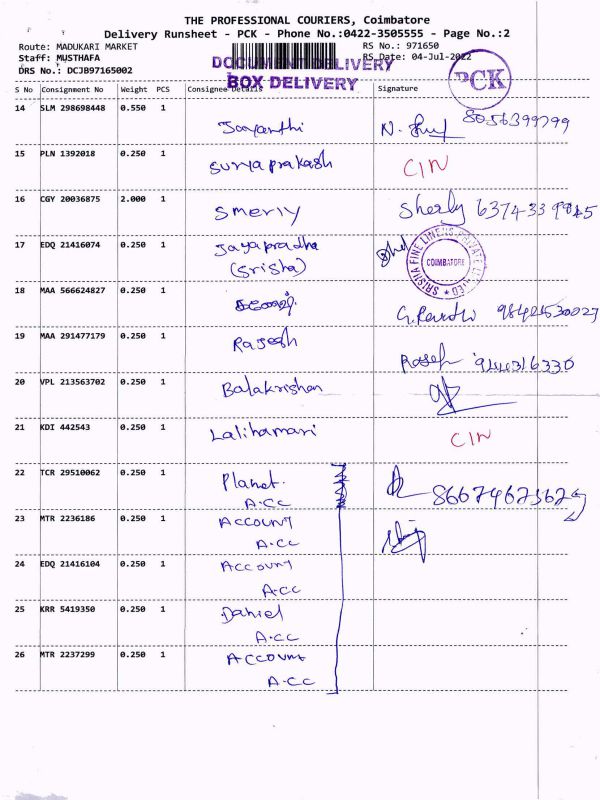 THE PROFESSIONAL COURIERS, Coimbatore
Delivery Runsheet - PCK - Phone No.:0422-3505555 - Page No.:2
Route: MADUKARI MARKET RS No.: 971650
Staff: MUSTHAFA RS Date: 04-Jul-2022
DRS No.: DCJB97165002
DOCUMENT DELIVERY
BOX DELIVERY
PCK
S No Consignment No Weight PCS Consignee Details Signature
14 SLM 298698448 0.550 1
Jayanthi 8056399799
15 PLN 1392018 0.250 1
Suryaprakash CIN
16 CGY 20036875 2.000 1
Smerly Sherly
17 EDQ 21416074 0.250 1
Jayapradha
(Srisha)
SRISHA FINE LINENS PRIVATE LIMITED
COIMBATORE
18 MAA 566624827 0.250 1
19 MAA 291477179 0.250 1
Rajesh
20 VPL 213563702 0.250 1
Balakrishan
21 KDI 442543 0.250 1
Lalithamari CIN
22 TCR 29510062 0.250 1
Planet.
A-CC
23 MTR 2236186 0.250 1
ACCOUNT
A-CC
24 EDQ 21416104 0.250 1
ACCOUNT
A-CC
25 KRR 5419350 0.250 1
Daniel
A-CC
26 MTR 2237299 0.250 1
ACCOUNT
A-CC